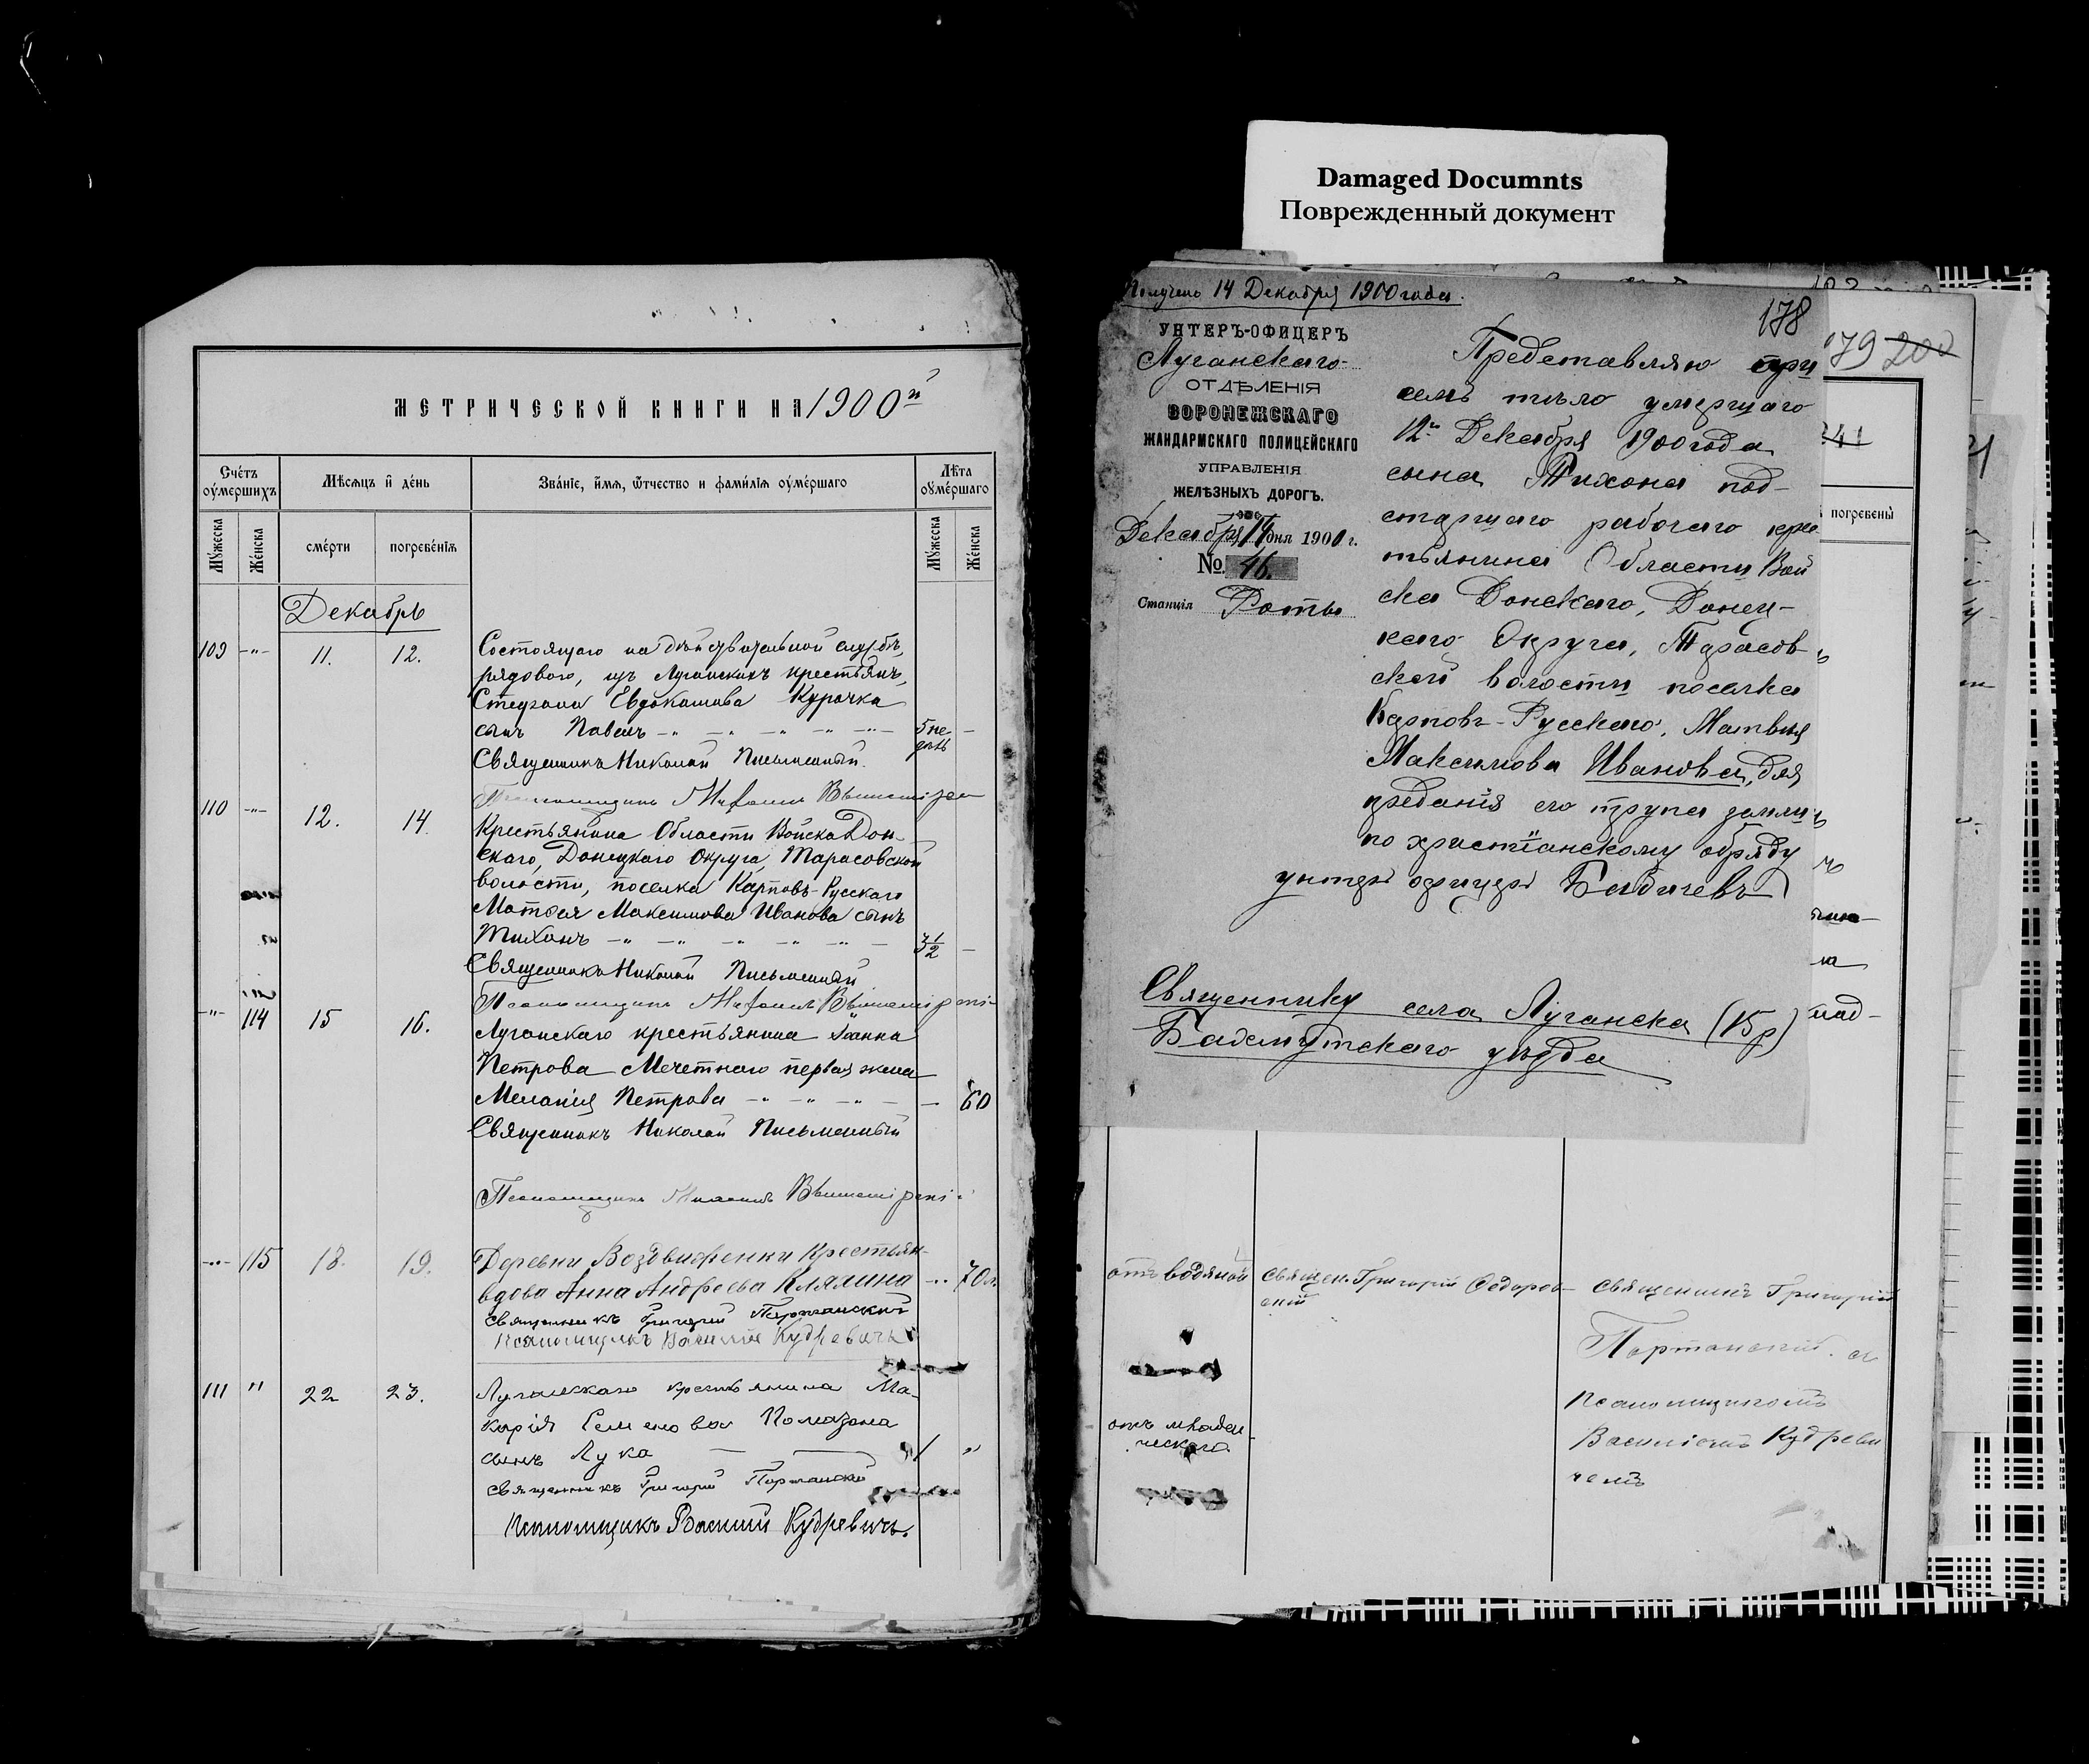 Damaged Documnts
Поврежденный документ
МЕТРИЧЕСКОЙ КНИГИ НА 1900й
Счетъ оумершихъ
Мѣсяцъ и день
Званіе, имя, отчество и фамилія оумершаго
Лѣта оумершаго
Мужеска
Женска
смерти
погребенія
Мужеска
Женска
Декабрь
109 -"- 11. 12. Состоящаго на действительной службѣ,
рядового, изъ Луганскихъ крестьянъ,
Стефана Евдокимова Курочка
сынъ Павелъ -"- -"- -"- -"- 5 не- -
дѣль
Священникъ Николай Письменный.
Псаломщикъ
110 -"- 12. 14. Крестьянина Области Войска Дон-
скаго, Донецкаго Округа, Тарасовской
волости, поселка Карповъ-Русскаго
Матвея Максимова Иванова сынъ
Тихонъ -"- -"- -"- -"- -"- - 3 1/2 -
Священникъ Николай Письменный
Псаломщикъ
-"- 114 15 16. Луганскаго крестьянина Іоанна
Петрова Мечетнаго первая жена
Меланія Петрова -"- -"- -"- - - 60
Священникъ Николай Письменный
Псаломщикъ
-"- 115 18. 19. Деревни Воздвиженки крестьян-
вдова Анна Андреева Клялина -"- 70 л.
Священникъ Григорій Портанскій
Псаломщикъ Василій Кудревичъ
111 " 22 23. Луганскаго крестьянина Ма-
карія Семенова Помазана
сынъ Лука 1 "
Священникъ Григорій Портанскій
Псаломщикъ Василій Кудревичъ.
Получено 14 Декабря 1900 года.
178
179 200
УНТЕРЪ-ОФИЦЕРЪ
Луганскаго
ОТДѢЛЕНІЯ
ВОРОНЕЖСКАГО
ЖАНДАРМСКАГО ПОЛИЦЕЙСКАГО
УПРАВЛЕНІЯ
ЖЕЛѢЗНЫХЪ ДОРОГЪ.
Декабря 14 дня 1900 г.
№ 46.
Станція Роты
Представляю при
семъ тѣло умершаго
12го Декабря 1900 года
сына Тихона под-
старшаго рабочего кре
тьянина Области Вой
ска Донскаго, Донец-
каго Округа, Тарасов-
ской волости поселка
Карповъ-Русскаго, Матвѣя
Максимова Иванова, для
преданія его трупа землѣ
по христіанскому обряду
унтеръ офицеръ Бабичевъ
Священнику села Луганска (Вр)
Бахмутскаго уѣзда
погребены
над-
отъ водяной
священ. Григорій Федоров-
скій
Священникъ Григорій
Портанскій. съ
псаломщикомъ
Василіемъ Кудреви
чемъ
отъ младен-
ческаго